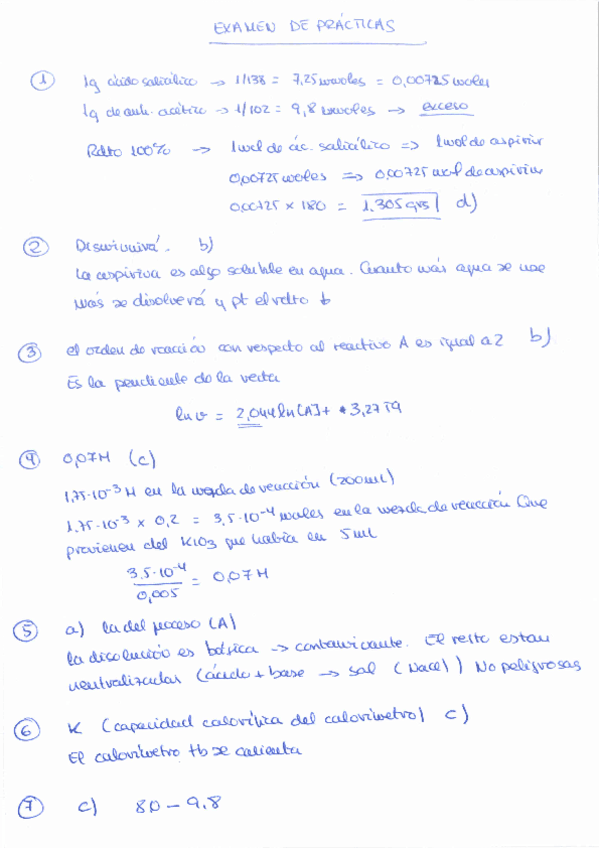 EXAMEN DE PRÁCTICAS
1 1g ácido salicílico → 1/138 = 7,25 mmoles = 0,00725 moles
1g de anh. acético → 1/102 = 9,8 mmoles → exceso
Rdto 100% → 1 mol de ác. salicílico ⇒ 1 mol de aspirin
0,00725 moles ⇒ 0,00725 mol de aspirin
0,00725 x 180 = 1,305 grs d)
2 Disminuirá. b)
La aspirina es algo soluble en agua. Cuanto más agua se use
más se disolverá y pt el rdto b
3 el orden de reacción con respecto al reactivo A es igual a 2 b)
Es la pendiente de la recta
ln v = 2,044 ln [A] + 3,2719
4 0,07M (c)
1,75·10⁻³ M en la mezcla de reacción (200ml)
1,75·10⁻³ x 0,2 = 3,5·10⁻⁴ moles en la mezcla de reacción que
provienen del KIO3 que había en 5ml
3,5·10⁻⁴
= 0,07M
0,005
5 a) la del proceso (A)
la disolución es básica → contaminante. El resto están
neutralizadas (ácido + base → sal (NaCl)) No peligrosas
6 K (capacidad calorífica del calorímetro) c)
El calorímetro tb se calienta
7 c) 80 - 9,8